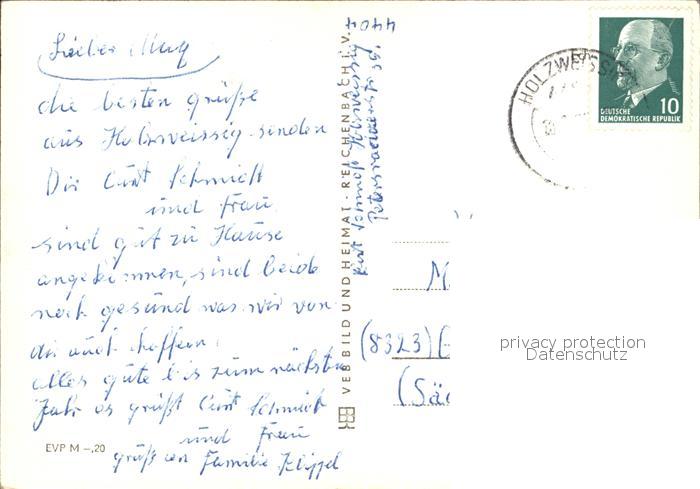 Lieber Muq
die besten grüße
aus Holzweissig senden
Dir Curt Schmidt
und Frau.
sind gut zu Hause
angekommen, sind beide
noch gesund was wir von
dir auch hoffen.
alles gute bis zum nächsten
Jahr es grüßt Curt Schmidt
und Frau
grüß an Familie
EVP M –,20
VEB BILD UND HEIMAT · REICHENBACH I. V.
4404
Holzweissig
HOLZWEISSIG
10
DEUTSCHE
DEMOKRATISCHE REPUBLIK
M
(8323)
(Säc
privacy protection
Datenschutz